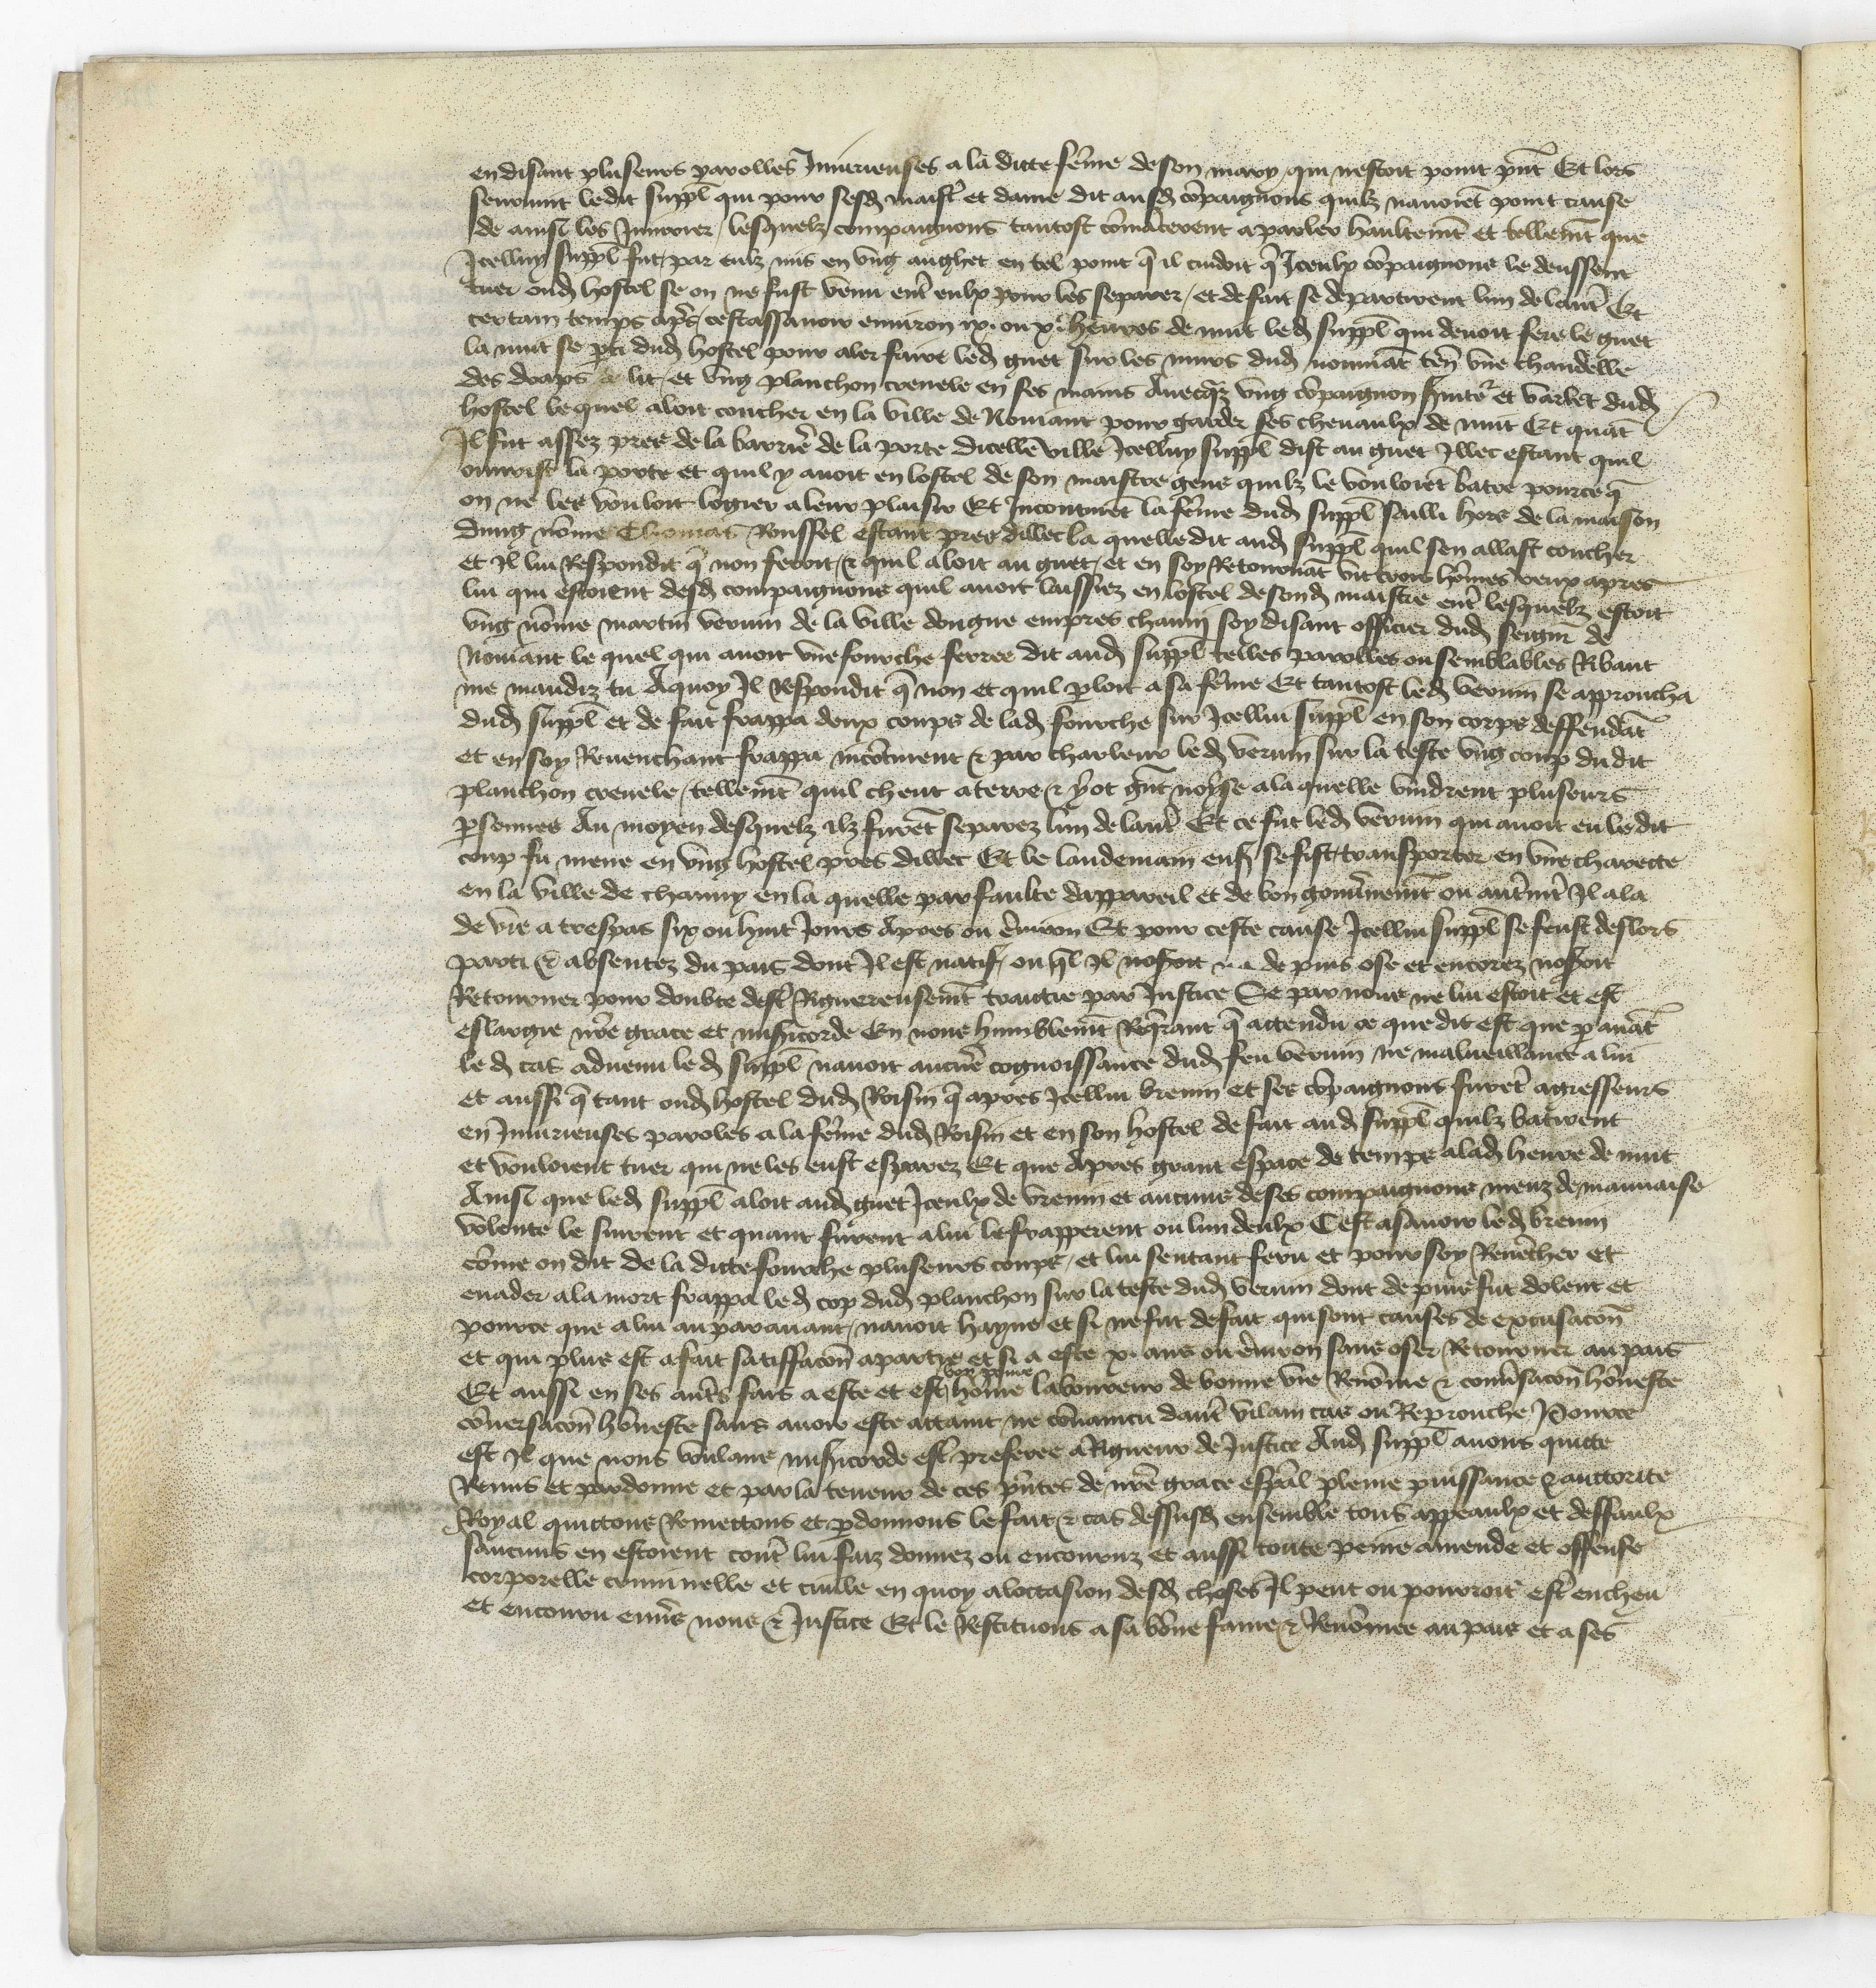 en disant pluseurs parolles Iniurieuses a la dicte fe͞me de son mary qui nestoit point pn͞t Et lors
seuruint ledit suppl͞ qui pour sesd͞ maist͞r et dame dit ausd͞ co͞paignons quilz nauoie͞t point cause
de ainsi les Iniurier / lesquelz compaignons tantost co͞mancerent a parler haultem͞t et tellem͞t que
Icelluy suppl͞ fut par eulz mis en vng anghet en tel point q͞ il cuidoit q͞ Iceulx co͞paignons le deussent
tuer oud͞ hostel se on ne fust venu ent͞r eulx pour les separer / et de fait se departirent lun de laut͞r Et
certain temps apr͞s / cestassauoir enuiron ix. ou x. heures de nuit led͞ suppl͞ qui deuoit fere le guet
la nuit se p͞ti dud͞ hostel pour aler faire led͞ guet sur les murs dud͞ nomia͞t ten͞ vne chandelle
des draps de lit / et vng planchon crenele en ses mains Auecq͞z vng co͞paignon et varlet dud͞
hostel lequel aloit coucher en la ville de Nomiant pour garder ses cheuaulx de nuit Et qua͞t
Il fut assez pres de la barrie͞r de la porte dicelle ville Icelluy suppl͞ dist au guet Illec estant quil
ouurist la porte et quil y auoit en lostel de son maistre gens quilz le vouloie͞t batre pource q͞
on ne les vouloit logier a leur plaisir Et Incontine͞t la fe͞me dud͞ suppl͞ sailli hors de la maison
dung no͞me Thomas Roussel estant pres dillec la quelle dit aud͞ suppl͞ quil sen allast coucher
et Il lui Respondit q͞ non feroit / & quil aloit au guet / et en soy Retourna͞t vit trois ho͞mes venx apres
lui qui estoient desd͞ compaignons quil auoit laissiez en lostel de sond͞ maistre ent͞r lesquelz estoit
vng no͞me martin veruin de la ville dongne empres chauny soy disant officier dud͞ seign͞r de
Nomiant le quel qui auoit vne fourche ferree dit aud͞ suppl͞ telles parolles ou semblables Ribaut
me maudiz tu Aquoy Il Respondit q͞ non et quil p͞loit a sa fe͞me Et tantost led͞ veruin se approucha
dud͞ suppl͞ et de fait frappa deux coups de lad͞ fourche sur Icellui suppl͞ en son corps deffenda͞t
et en soy Reuenchant frappa inco͞tinent & par chaleur led͞ veruin sur la teste vng coup dudit
planchon crenele / tellem͞t quil cheut a terre & y ot gr͞nt noyse a la quelle vindrent pluseurs
p͞sonnes Au moyen desquelz ilz fure͞t separez lun de laut͞r Et ce fut led͞ veruin qui auoit eu ledit
coup fu mene en vng hostel pres dillec Et le landemain ens͞ se fist transporter en vne charecte
en la ville de chauny en la quelle par faulte dappareil et de bon gouu͞nem͞t ou aut͞rm͞t Il ala
de vie a trespas six ou huit Iours Apres ou e͞nuiron Et pour ceste cause Icellui suppl͞ se feust deslors
parti & absentez du pais dont Il est natif / ou q͞l Il nosoit de puis ose et encorez nosoit
Retourner pour doubte dest͞r Rigoreusem͞t traictie par Iustice Se par nous ne lui estoit et est
eslargie nr͞e grace et misericorde En nous humblem͞t Req͞rant q͞ attendu ce que dit est que p͞ aua͞t
led͞ cas aduenu led͞ suppl͞ nauoit aucu͞e cognoissance dud͞ feu veruin ne malueillance a lui
et aussi q͞ tant oud͞ hostel dud͞ Roisin q͞ apres Icellui vreuin et ses co͞paignons fure͞t agresseurs
en Iniurieuses paroles a la fe͞me dud͞ Roisin et en son hostel de fait aud͞ suppl͞ quilz batirent
et vouloient tuer qui ne les eust esparez Et que Apres grant espace de temps a lad͞ heure de nuit
Ainsi que led͞ suppl͞ aloit aud͞ guet Iceulx de vreuin et aucuns de ses compaignons meuz de mauuaise
volente le suirent et quant furent a lui le frapperent ou lun deulx Cest asauoir led͞ vreuin
co͞me on dit de la dicte fourche pluseurs coups / et lui sentant feru et pour soy Reue͞cher et
euader a la mort frappa led͞ cop dud͞ planchon sur la teste dud͞ veruin dont de puis fut dolent et
pource que a lui au parauant nauoit hayne et si ne fut de fait qui sont causes de excusaco͞n
et qui plus est a fait satiffaco͞n a partie et si a este xi. ans ou e͞nuiron sans oser Retourner au pais
Et aussi en ses aut͞rs fais a este et est ho͞me laboureur de bonne vie Reno͞mee & conu͞saco͞n ho͞neste
co͞uersaco͞n ho͞neste sans auoir este attaint ne co͞uaincu daut͞r vilain cas ou Reprouche Pource
est Il que nous voulans misericorde est͞r preferee a Rigueur de Iustice Aud͞ suppl͞ auons quicte
Remis et pardonne et par la teneur de ces pn͞tes de nr͞e grace esp͞al pleine puissance & auctorite
Royal quictons Remettons et p͞donnons le fait & cas dessusd͞ ensemble tous appeaulx et deffaulx
saucuns en estoient cont͞r lui faiz donnez ou encouruz et aussi toute peine amende et offense
corporelle criminelle et ciuile en quoy a loccasion desd͞ choses Il peut ou pourroit est͞r encheu
et encouru enu͞rs nous & Iustice Et le Restituons a sa bo͞ne fame & Reno͞mee au pais et a ses